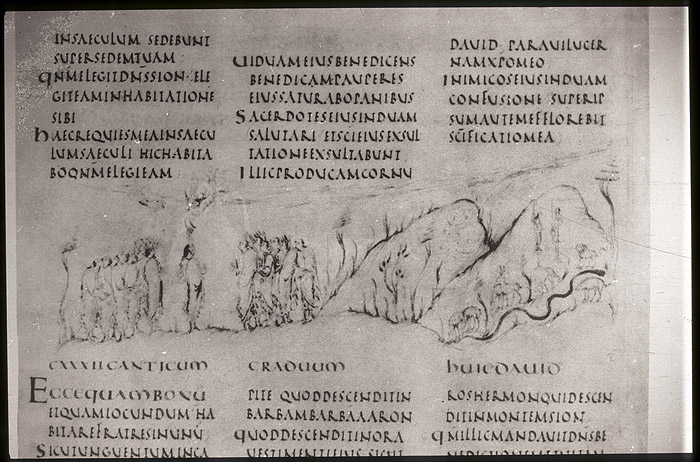 INSAECULUM SEDEBUNT
SUPERSEDEMTUAM
QNMELEGITDNSSION ELE
GITEAMINHABITATIONE
SIBI
HAECREQUIESMEAINSAECU
LUMSAECULI HICHABITA
BOQNMELEGIEAM
UIDUAMEIUSBENEDICENS
BENEDICAMPAUPERES
EIUSSATURABOPANIBUS
SACERDOTESEIUSINDUAM
SALUTARI ETSCIEIUSEXSUL
TATIONEEXSULTABUNT
ILLICPRODUCAMCORNU
DAUID PARAUILUCER
NAMXPOMEO
INIMICOSEIUSINDUAM
CONFUSIONE SUPERIP
SUMAUTEMEFFLOREBIT
SCIFICATIOMEA
CXXXIICANTICUM GRADUUM HUICDAUID
ECCEQUAMBONU
ETQUAMIOCUNDUM HA
BITAREFRATRESINUNU
SICUTUNGUENTUMINCA
PITE QUODDESCENDITIN
BARBAMBARBAAARON
QUODDESCENDITINORA
UESTIMENTIEIUS SICUT
ROSHERMONQUIDESCEN
DITINMONTEMSION
QMILLICMANDAUITDNSBE